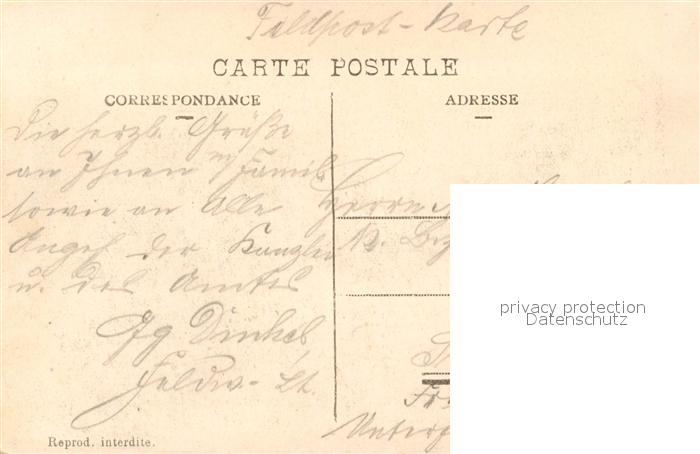 Feldpost-Karte
CARTE POSTALE
CORRESPONDANCE
ADRESSE
Die herzl. Grüße
an Ihnen m/ Famil.
sowie an Alle
Angest. der Kanzlei
u. des Amtes
Jg Dinkel
Feldw.-Lt.
Herrn
K. Bez
Unterf
Reprod. interdite.
privacy protection
Datenschutz